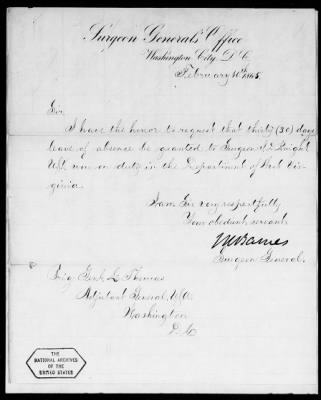 Surgeon General's Office
Washington City D C.
February 10th 1865.
Sir
I have the honor to request that thirty (30) days
leave of absence be granted to Surgeon
now on duty in the Department of West Vir-
ginia.
I am Sir very respectfully
Your obedient servant
Barnes
Surgeon General.
Brig Genl L Thomas
Adjutant General, U.S.A.
Washington
D. C.
THE
NATIONAL ARCHIVES
OF THE
UNITED STATES